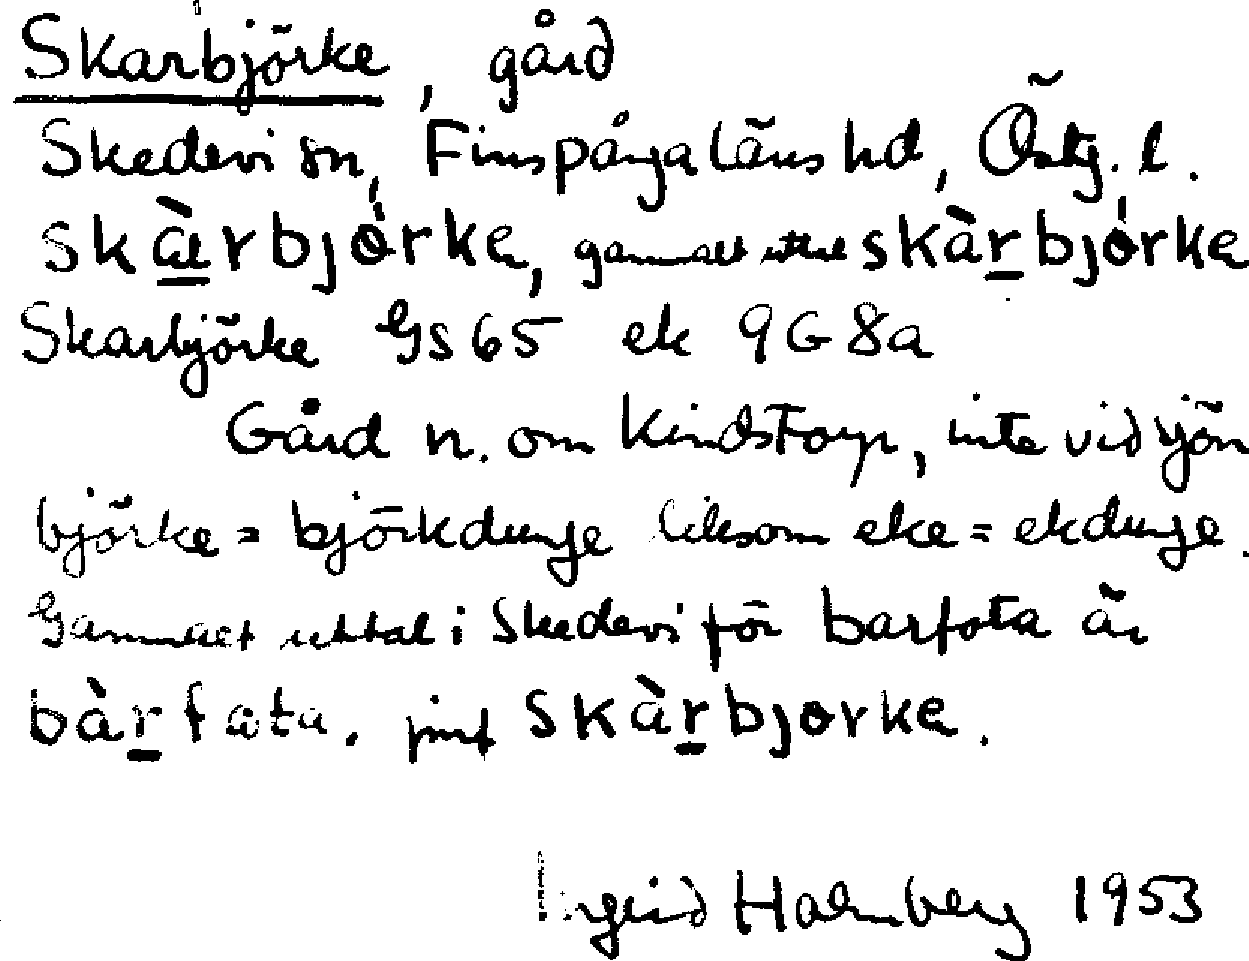 Skarbjörke, gård
Skedevi sn, Finspånga läns hd, Östg. l.
skàrbjörke, gammalt uttal skàrbjörke
Skarbjörke GS65 ek 9G8a
Gård n. om Kindstorp, inte vid sjön
björke = björkdunge liksom eke = ekdunge.
Gammalt uttal i Skedevi för barfota är
bàrfata. jmf skàrbjorke.
Ingrid Holmberg 1953